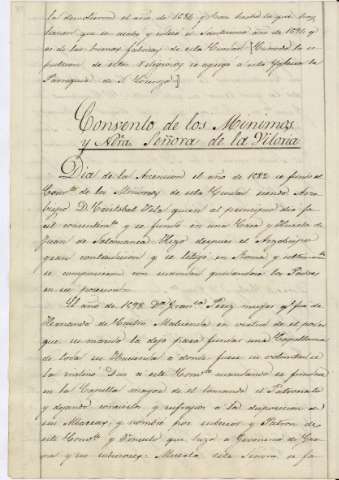 la demolieron el año de 1586 y han hecho la que hoy
tienen que se acabo y colocó el Santisimo año de 1594 y
es de las buenas fabricas de esta Ciudad
de estos Religiosos se agregó a esta Yglesia la
Parroquia de S. Lorenzo.
Convento de los Minimos
y Ntra. Señora de la Vitoria
Dia de la Ascension el año de 1552 se fundó el
Convto de los Minimos de esta Ciudad siendo Arzo-
bispo D. Cristobal Vela quien al principio dio fa
y se fundó en una Casa y Huerta de
Juan de Salamanca. Hizo despues el Arzobispo
gran contradicion y se litigó en Roma y
se compusieron con quedandose los Padres
en su posesion.
El año de 1598 Dª Franca Perez muger qe fué de
Hernando de Castro Maluenda en virtud de el poder
que su marido la dejo para fundar una Capellania
de toda su Hacienda a donde fuese su voluntad
la Dio a este Convto mandando se fundase
en la Capilla mayor de él tomando el Patronato
y dejando y sufragios a la disposicion de
sus Albaceas y nombró por y Patron de
este Convto y Vinculo que hizo a Geronimo de
y sus subcesores. Muerta esta Señora se